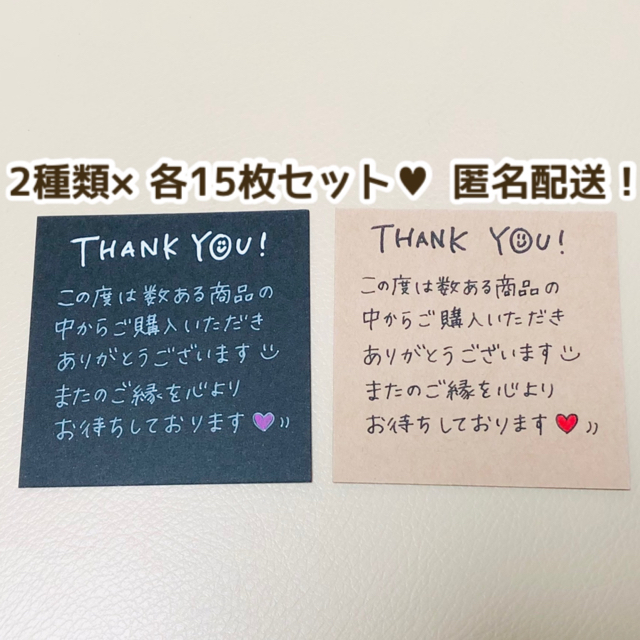 2種類× 各15枚セット♥ 匿名配送！
THANK YOU!
この度は数ある商品の
中からご購入いただき
ありがとうございます
またのご縁を心より
お待ちしております
THANK YOU!
この度は数ある商品の
中からご購入いただき
ありがとうございます
またのご縁を心より
お待ちしております